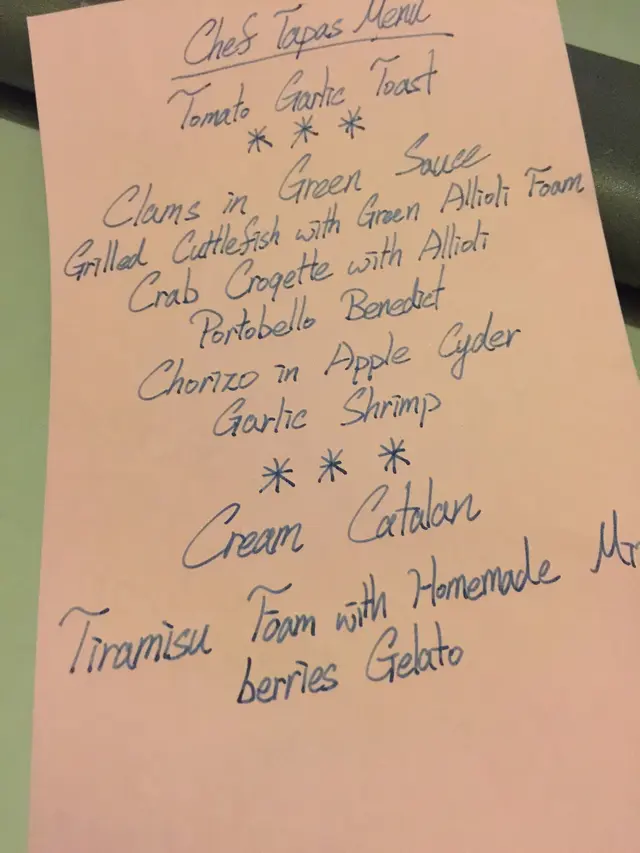 Chef Tapas Menu
Tomato Garlic Toast
* * *
Clams in Green Sauce
Grilled Cuttlefish with Green Allioli Foam
Crab Croqette with Allioli
Portobello Benedict
Chorizo in Apple Cyder
Garlic Shrimp
* * *
Cream Catalan
Tiramisu Foam with Homemade
berries Gelato